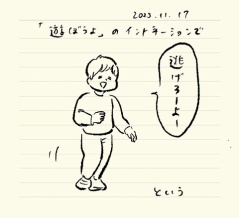 2023.11.17
「遊ぼうよ」のイントネーションで
逃げろーよー
という